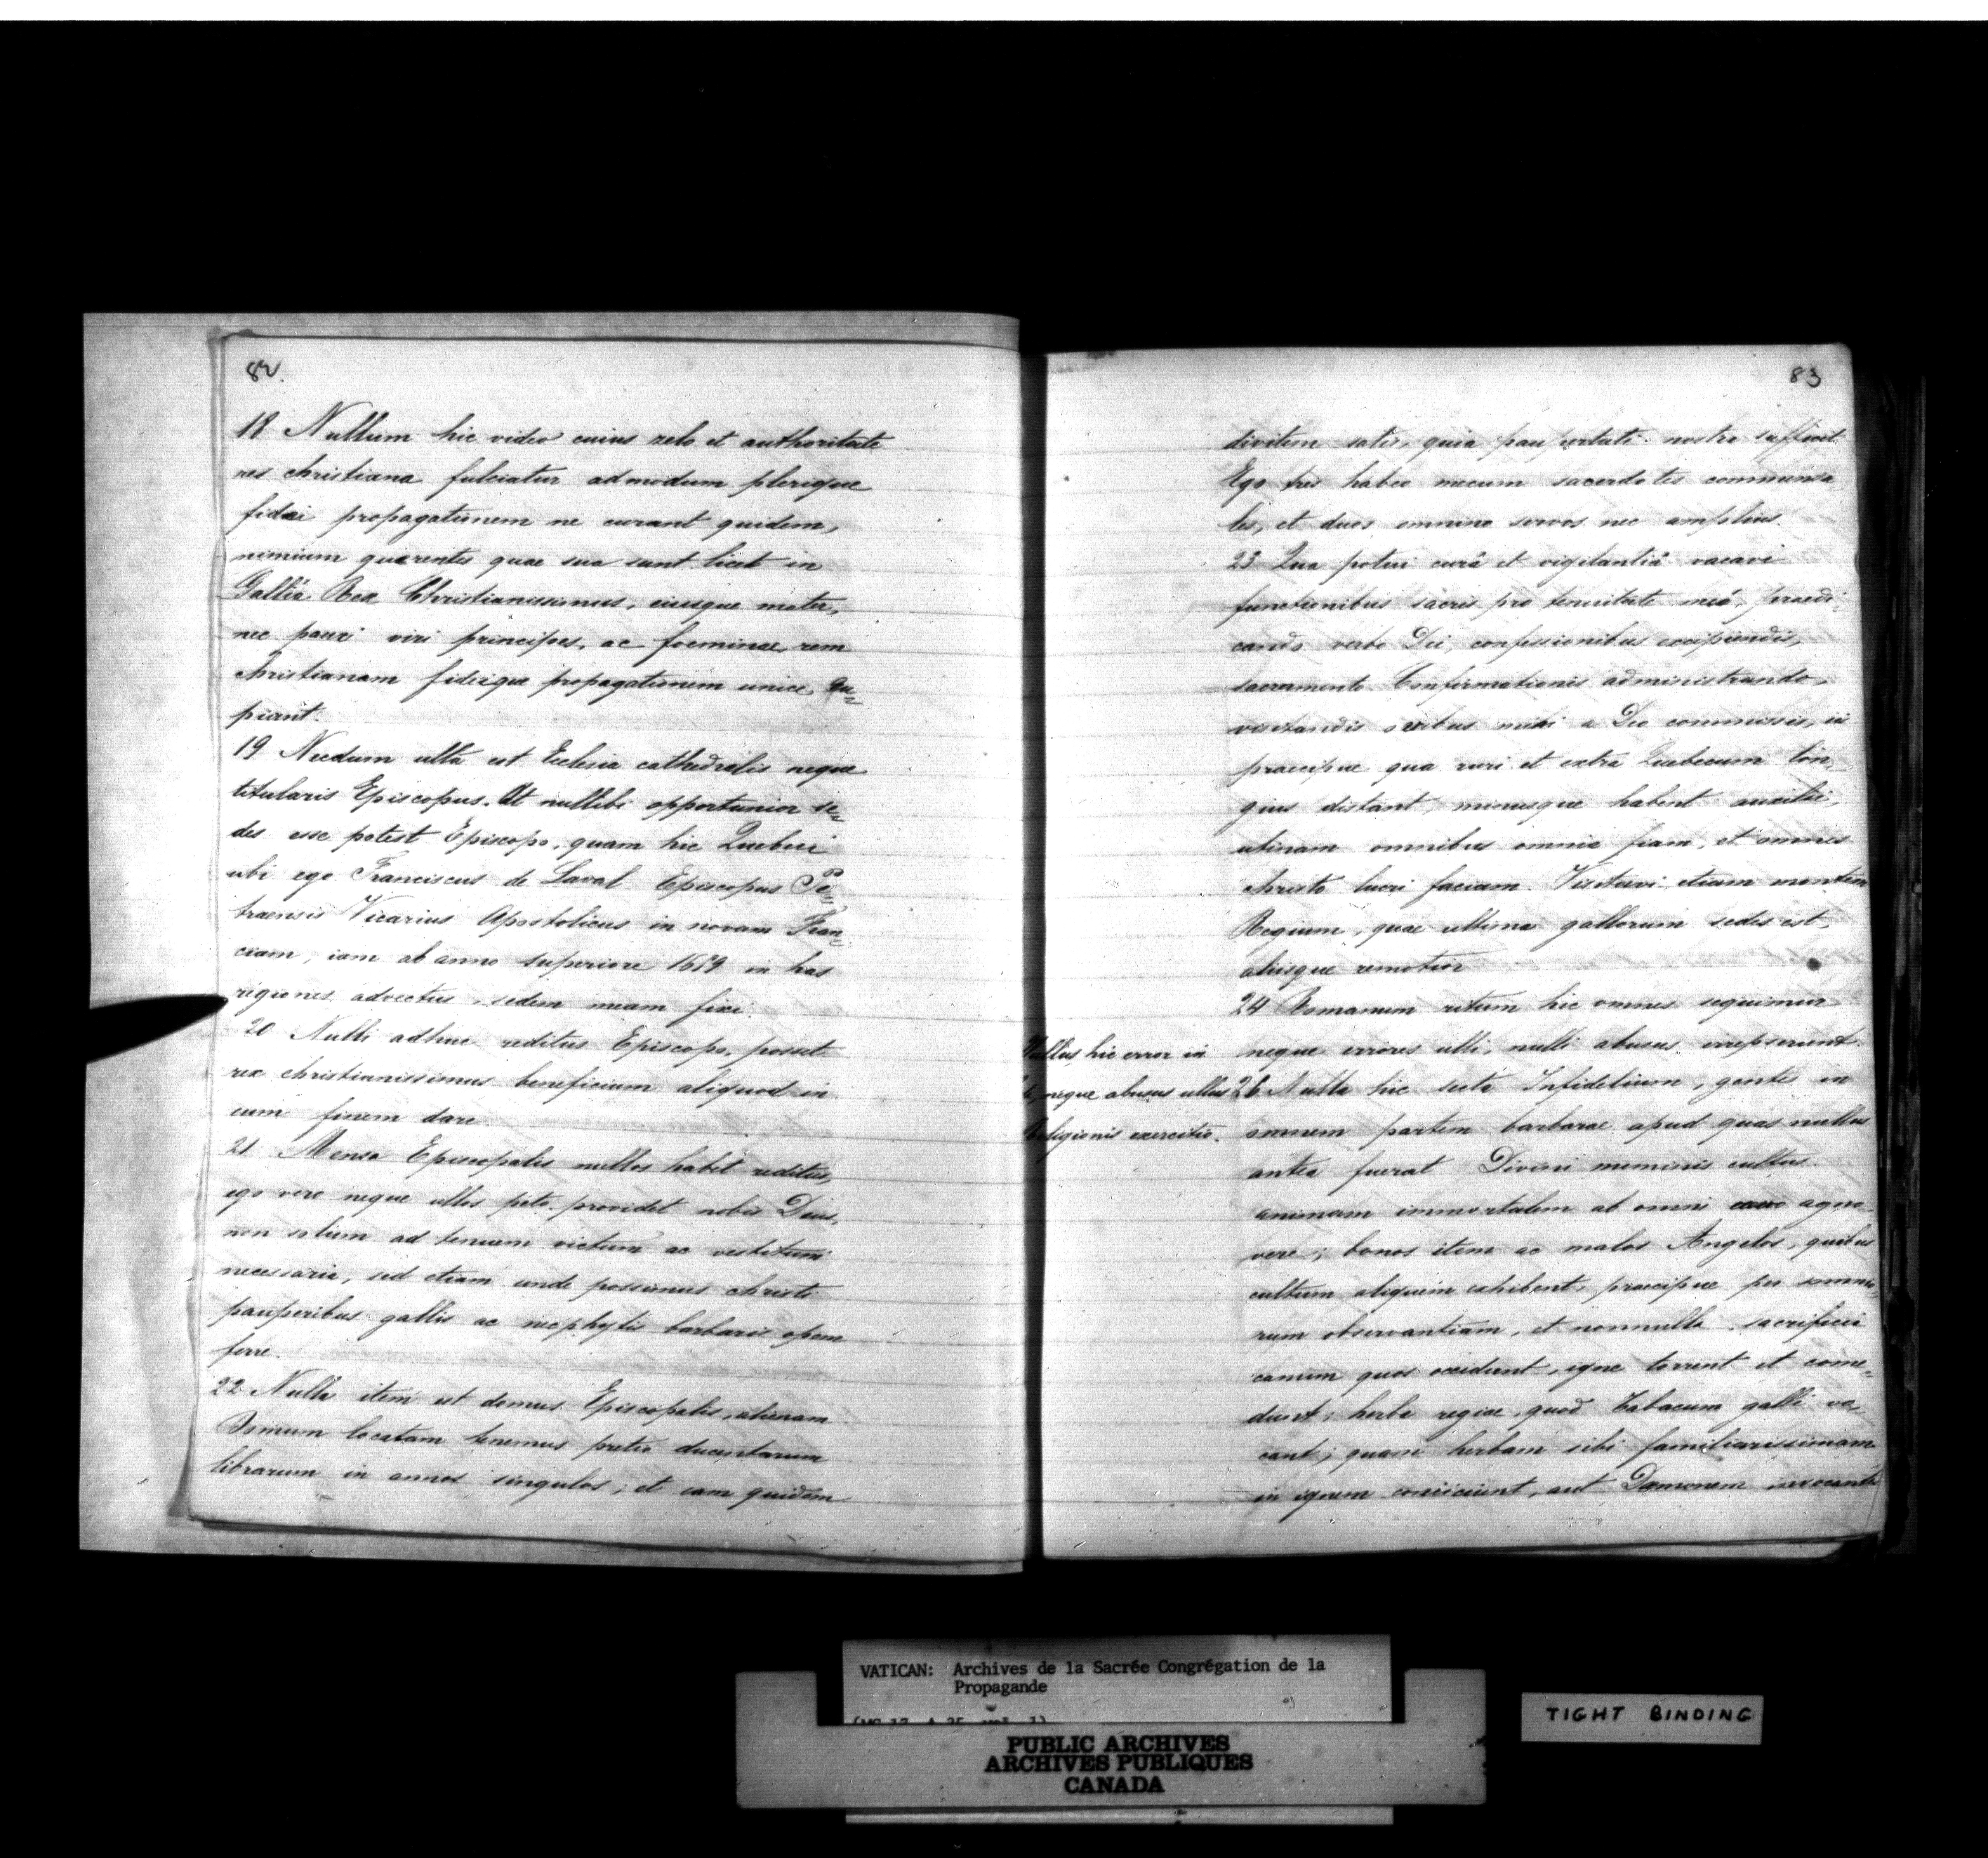 82.
18 Nullum hic video cuius zelo et authoritate
res christiana fulciatur admodum plerique
fidei propagationem ne curant quidem,
nimium quaerentes quae sua sunt licet in
Galliâ Rex Christianissimus, eiusque mater,
nec pauci viri principes, ac foeminae, rem
christianam fideique propagationem unice cu=
piant.
19 Necdum ulla est Ecclesia cathedralis neque
titularis Episcopus. At nullibi opportunior se=
des esse potest Episcopo, quam hic Quebeci
ubi ego Franciscus de Laval Episcopus Pe=
traensis Vicarius Apostolicus in novam Fran=
ciam, iam ab anno superiore 1659 in has
regiones advectus, sedem meam fixi.
20 Nulli adhuc reditus Episcopo, posset
rex christianissimus beneficium aliquod in
eum finem dare.
21 Mensa Episcopalis nullos habet reditus,
ego vero neque ullos peto. providet nobis Deus,
non solum ad tenuem victum ac vestitum
necessaria, sed etiam unde possimus christi
pauperibus gallis ac neophytis barbaris opem
ferre.
22 Nulla item est domus Episcopalis, alienam
Domum locatam tenemus pretio ducentarum
librarum in annos singulos; et eam quidem
83
divitem satis, quia paupertati nostre sufficit
Ego tres habeo mecum sacerdotes commensa=
les, et duos omnino servos nec amplius.
23 Qua potui curâ et vigilantiâ vacavi
functionibus sacris pro tenuitate meâ, praedi=
cando verbo Dei, confessionibus excipiendis,
sacramento Confirmationis administrando,
visitandis ovibus mihi a Deo commissis, iis
praecipue qua ruri et extra Quebecum lon=
gius distant, minusque habent auxilii,
utinam omnibus omnia fiam, et omnes
christo lucri faciam. Visitavi etiam montem
Regium, quae ultima gallorum sedes est,
aliisque remotior
24 Romanum ritum hic omnes sequimur
neque errores ulli, nulli abusus irrepserunt.
Nullus hic error in
neque abusus ullus
Religionis exercitio.
26 Nulla hic secta Infidelium, gentes in
omnem partem barbarae apud quas nullus
antea fuerat Divini numinis cultus.
animam immortalem ab omni aevo agno=
vere; bonos item ac malos Angelos, quibus
cultum aliquem exhibent, praecipue per somnio=
rum observantiam, et nonnulla sacrificia
canum quos occidunt, igne torrent et come=
dunt; herba regiae, quod Tabacum galli vo=
cant; quam herbam sibi familiarissimam
in ignem coniiciunt, aut Daemonem invocantes
VATICAN: Archives de la Sacrée Congrégation de la
Propagande
(MG 17, A 25, vol. 1)
PUBLIC ARCHIVES
ARCHIVES PUBLIQUES
CANADA
TIGHT BINDING